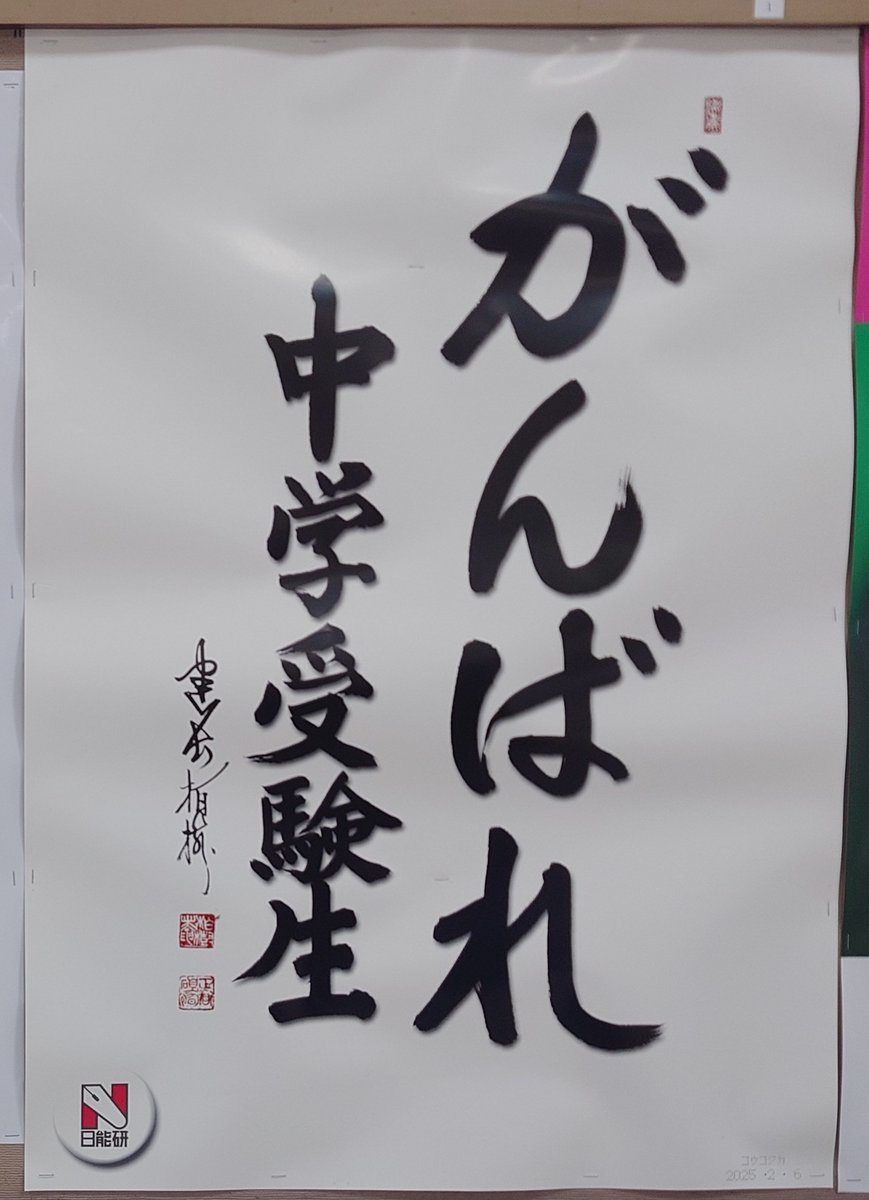 がんばれ
中学受験生
日能研
コウコクカ
2025 · 2 · 6